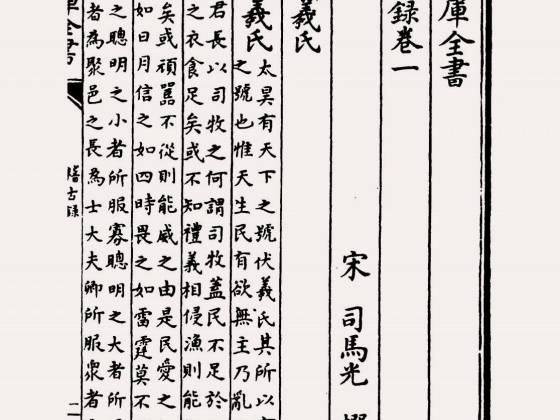 庫全書
錄卷一
宋 司馬光
羲氏
羲氏
太昊有天下之號伏羲氏其所以
之號也惟天生民有欲無主乃亂
君長以司牧之何謂司牧蓋民不足於
之衣食足矣或不知禮義相侵漁則能
矣或頑嚚不從則能威之由是民愛之
如日月信之如四時畏之如雷霆莫不
之聰明之小者所服寡聰明之大者所
者為聚邑之長為士大夫卿所服衆者
庫全書
稽古錄